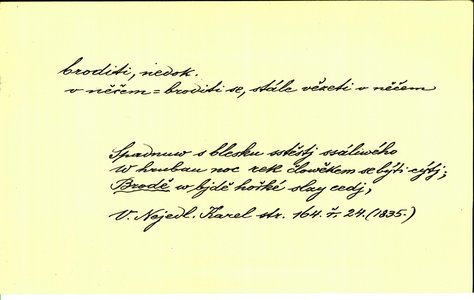 broditi, nedok.
v něčem = broditi se, stále vězeti v něčem
Spadnuw s blesku sstěstj ssáliwého
W hrubau noc rek člowěkem se býti cýtj;
Brodě w bjdě hořké slzy cedj;
V. Nejedl. Karel str. 164. ř. 24. (1835.)